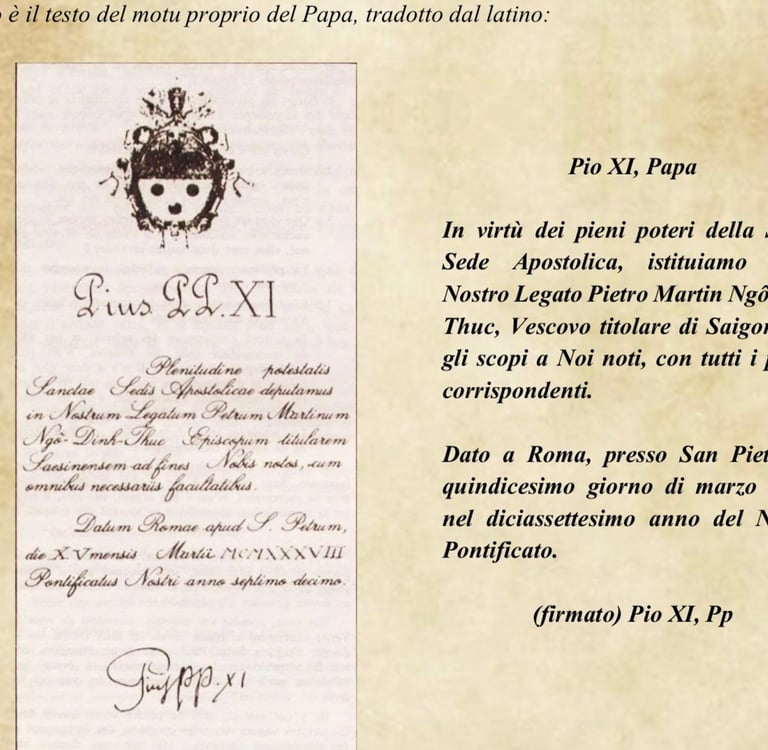 è il testo del motu proprio del Papa, tradotto dal latino:
Pius PP. XI
Plenitudine potestatis
Sanctae Sedis Apostolicae deputamus
in Nostrum Legatum Petrum Martinum
Ngô-Dinh-Thuc Episcopum titularem
Saesinensem ad fines Nobis notos, cum
omnibus necessariis facultatibus.
Datum Romae apud S. Petrum,
die XV mensis Martii MCMXXXVIII
Pontificatus Nostri anno septimo decimo.
Pius PP. XI
Pio XI, Papa
In virtù dei pieni poteri della
Sede Apostolica, istituiamo
Nostro Legato Pietro Martin Ngô
Thuc, Vescovo titolare di Saigon
gli scopi a Noi noti, con tutti i
corrispondenti.
Dato a Roma, presso San Piet
quindicesimo giorno di marzo
nel diciassettesimo anno del
Pontificato.
(firmato) Pio XI, Pp